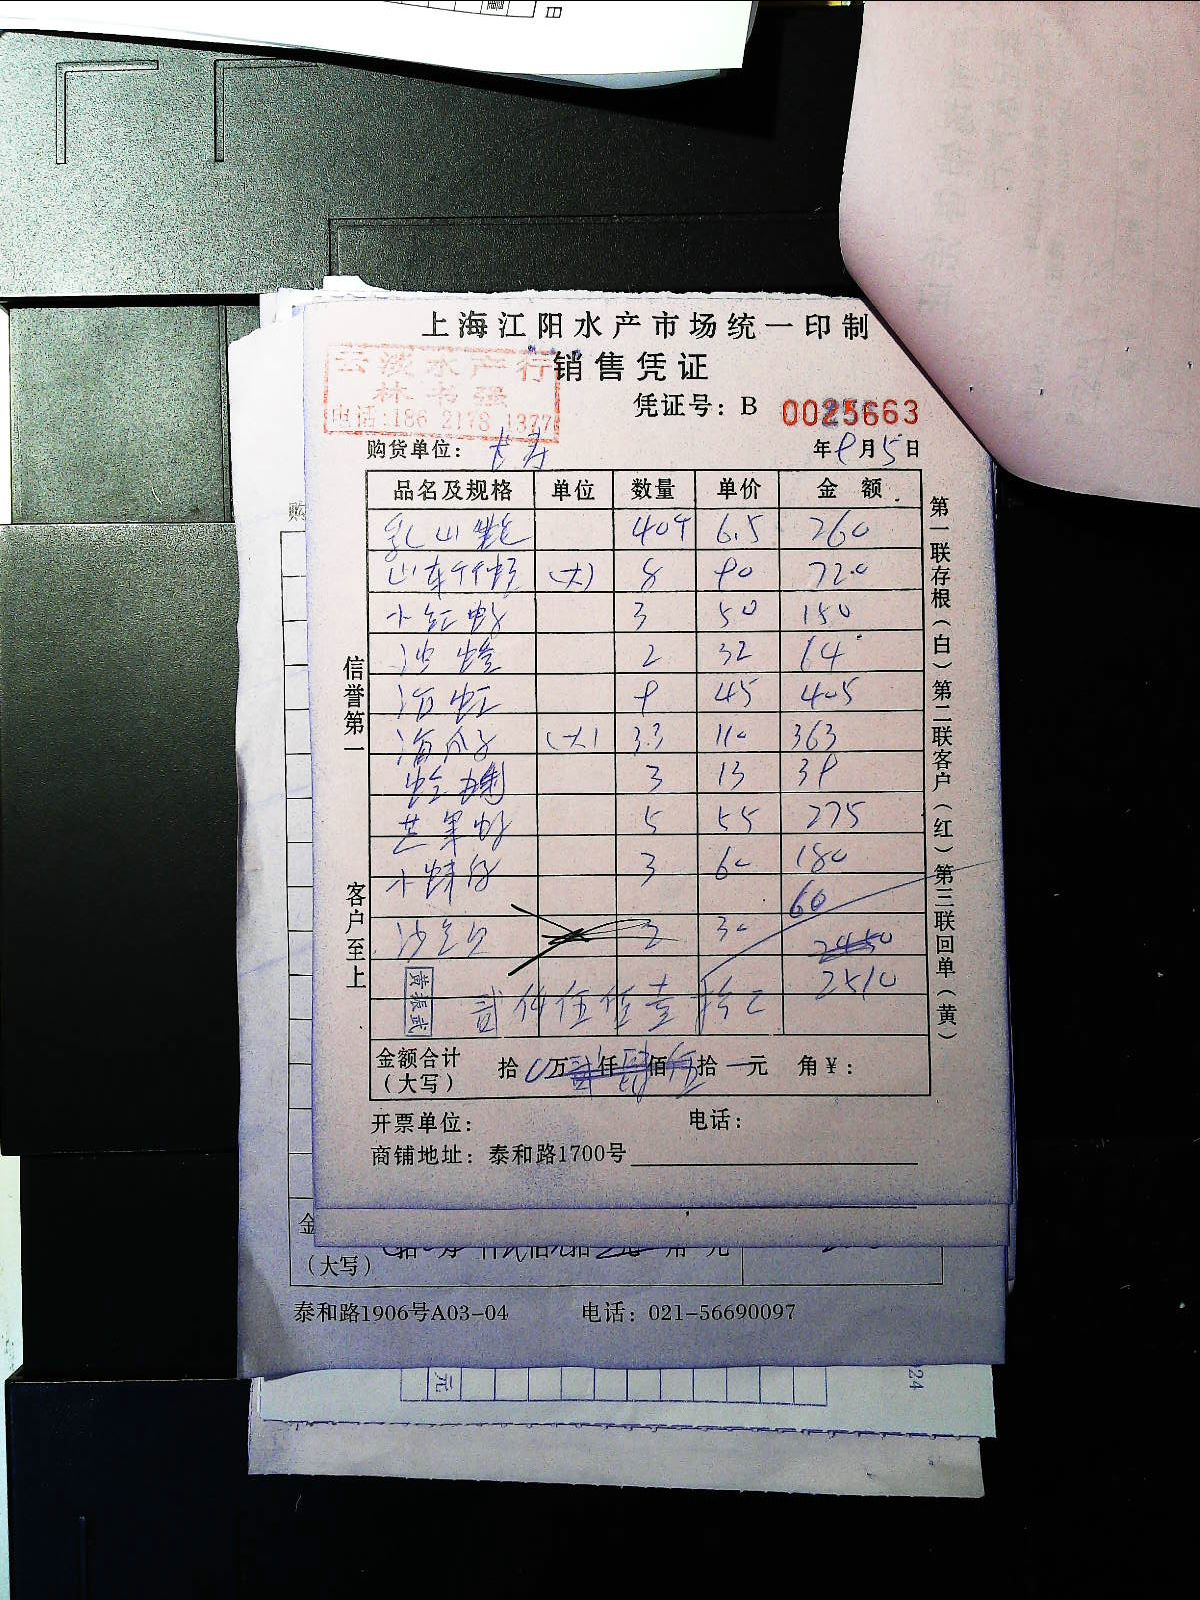 日
上海江阳水产市场统一印制
云淡水产行
林书强
电话:186 2178 1377
销售凭证
凭证号: B 0025663
购货单位:
年 9 月 5 日
品名及规格 单位 数量 单价 金 额
乳山 40个 6.5 260
山东竹蛏 (大) 8 90 720
小红虾 3 50 150
沙蛏 2 32 64
沼虾 9 45 405
海瓜子 (大) 3.3 110 363
蛤蜊 3 13 39
芒果虾 5 55 275
小 3 60 180
60
沙 2 30 2450
2510
黄振武
贰仟伍佰壹拾元
金额合计
(大写)
拾 万 贰 仟 肆 佰 伍 拾 元 角 ¥:
开票单位: 电话:
商铺地址: 泰和路1700号
信誉第一
客户至上
第一联存根(白) 第二联客户(红) 第三联回单(黄)
购
金
(大写)
泰和路1906号A03-04 电话: 021-56690097
元
24